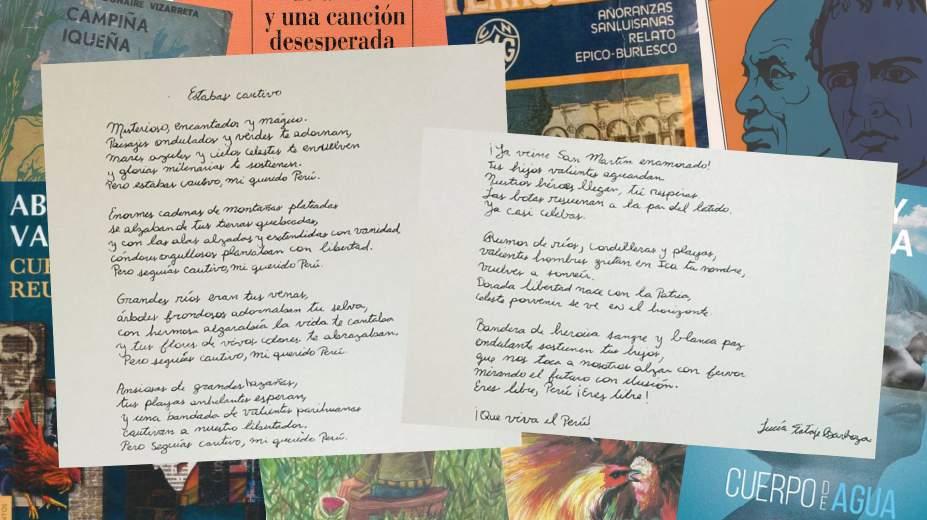 ONAIRE VIZARRETA
CAMPIÑA
IQUEÑA
y una canción
desesperada
AÑORANZAS
SANLUISANAS
RELATO
EPICO-BURLESCO
AB
VA
CUE
REU
Y
A
Estabas cautivo
Misterioso, encantador y mágico.
Paisajes ondulados y verdes te adornan,
mares azules y cielos celestes te envuelven
y glorias milenarias te sostienen.
Pero estabas cautivo, mi querido Perú.
Enormes cadenas de montañas plateadas
se alzaban de tus tierras quebradas,
y con las alas alzadas y extendidas con vanidad
cóndores orgullosos planeaban con libertad.
Pero seguías cautivo, mi querido Perú.
Grandes ríos eran tus venas,
árboles frondosos adornaban tu selva,
con hermosa algarabía la vida te cantaba
y tus flores de vivos colores te abrazaban.
Pero seguías cautivo, mi querido Perú.
Ansiosas de grandes hazañas,
tus playas anhelantes esperan,
y una bandada de valientes parihuanas
cautivan a nuestro libertador.
Pero seguías cautivo, mi querido Perú.
¡Ya viene San Martín enamorado!
Tus hijos valientes aguardan.
Nuestros héroes llegan, tú respiras.
Las botas resuenan a la par del latido.
Ya casi celebras.
Rumor de ríos, cordilleras y playas,
valientes hombres gritan en Ica tu nombre,
vuelves a sonreír.
Dorada libertad nace con la Patria,
celeste porvenir se ve en el horizonte.
Bandera de heroica sangre y blanca paz
ondulante sostienen tus hijos,
que nos toca a nosotros alzar con fervor
mirando el futuro con ilusión.
Eres libre, Perú ¡Eres libre!
¡Que viva el Perú!
Lucía
CUERPO DE AGUA